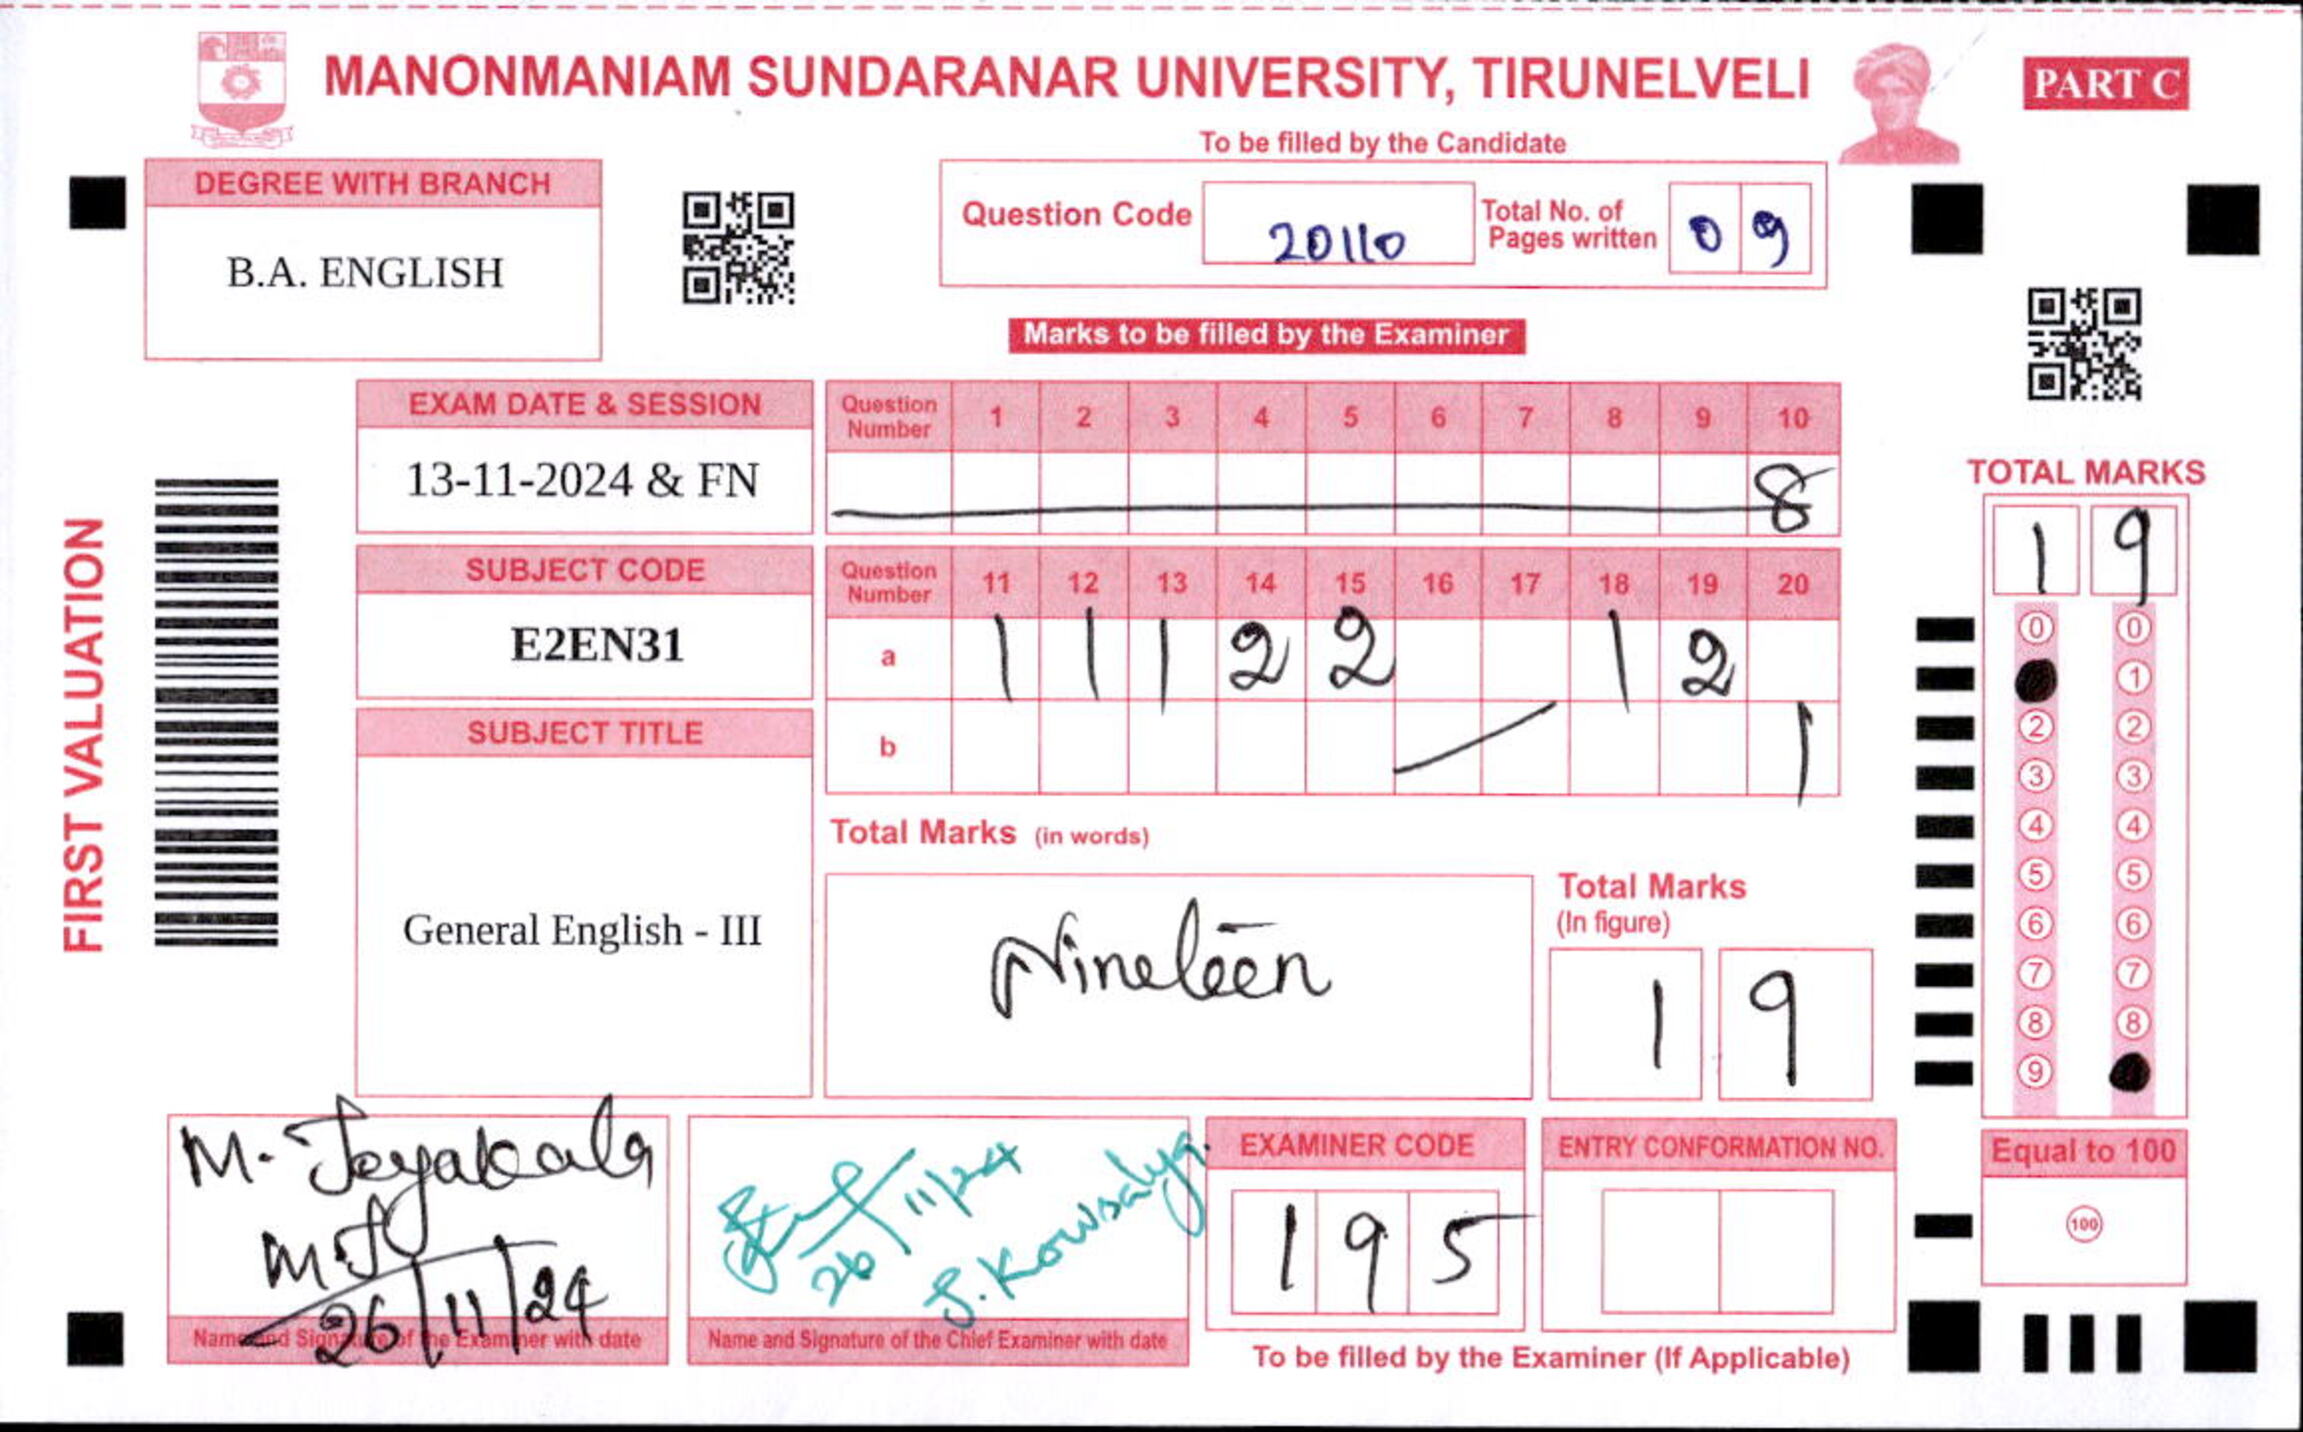 MANONMANIAM SUNDARANAR UNIVERSITY, TIRUNELVELI
PART C
To be filled by the Candidate
DEGREE WITH BRANCH
B.A. ENGLISH
Question Code 20110 Total No. of Pages written 0 9
Marks to be filled by the Examiner
FIRST VALUATION
EXAM DATE & SESSION
13-11-2024 & FN
SUBJECT CODE
E2EN31
SUBJECT TITLE
General English - III
Question Number 1 2 3 4 5 6 7 8 9 10
8
Question Number 11 12 13 14 15 16 17 18 19 20
a 1 1 1 2 2 1 2
b 1
Total Marks (in words)
Nineteen
Total Marks
(In figure)
1 9
TOTAL MARKS
1 9
0 0
1
2 2
3 3
4 4
5 5
6 6
7 7
8 8
9
Equal to 100
100
M. Jeyakala
M.J
26/11/24
Name and Signature of the Examiner with date
26/11/24
S. Kowsalya.
Name and Signature of the Chief Examiner with date
EXAMINER CODE
1 9 5
ENTRY CONFORMATION NO.
To be filled by the Examiner (If Applicable)